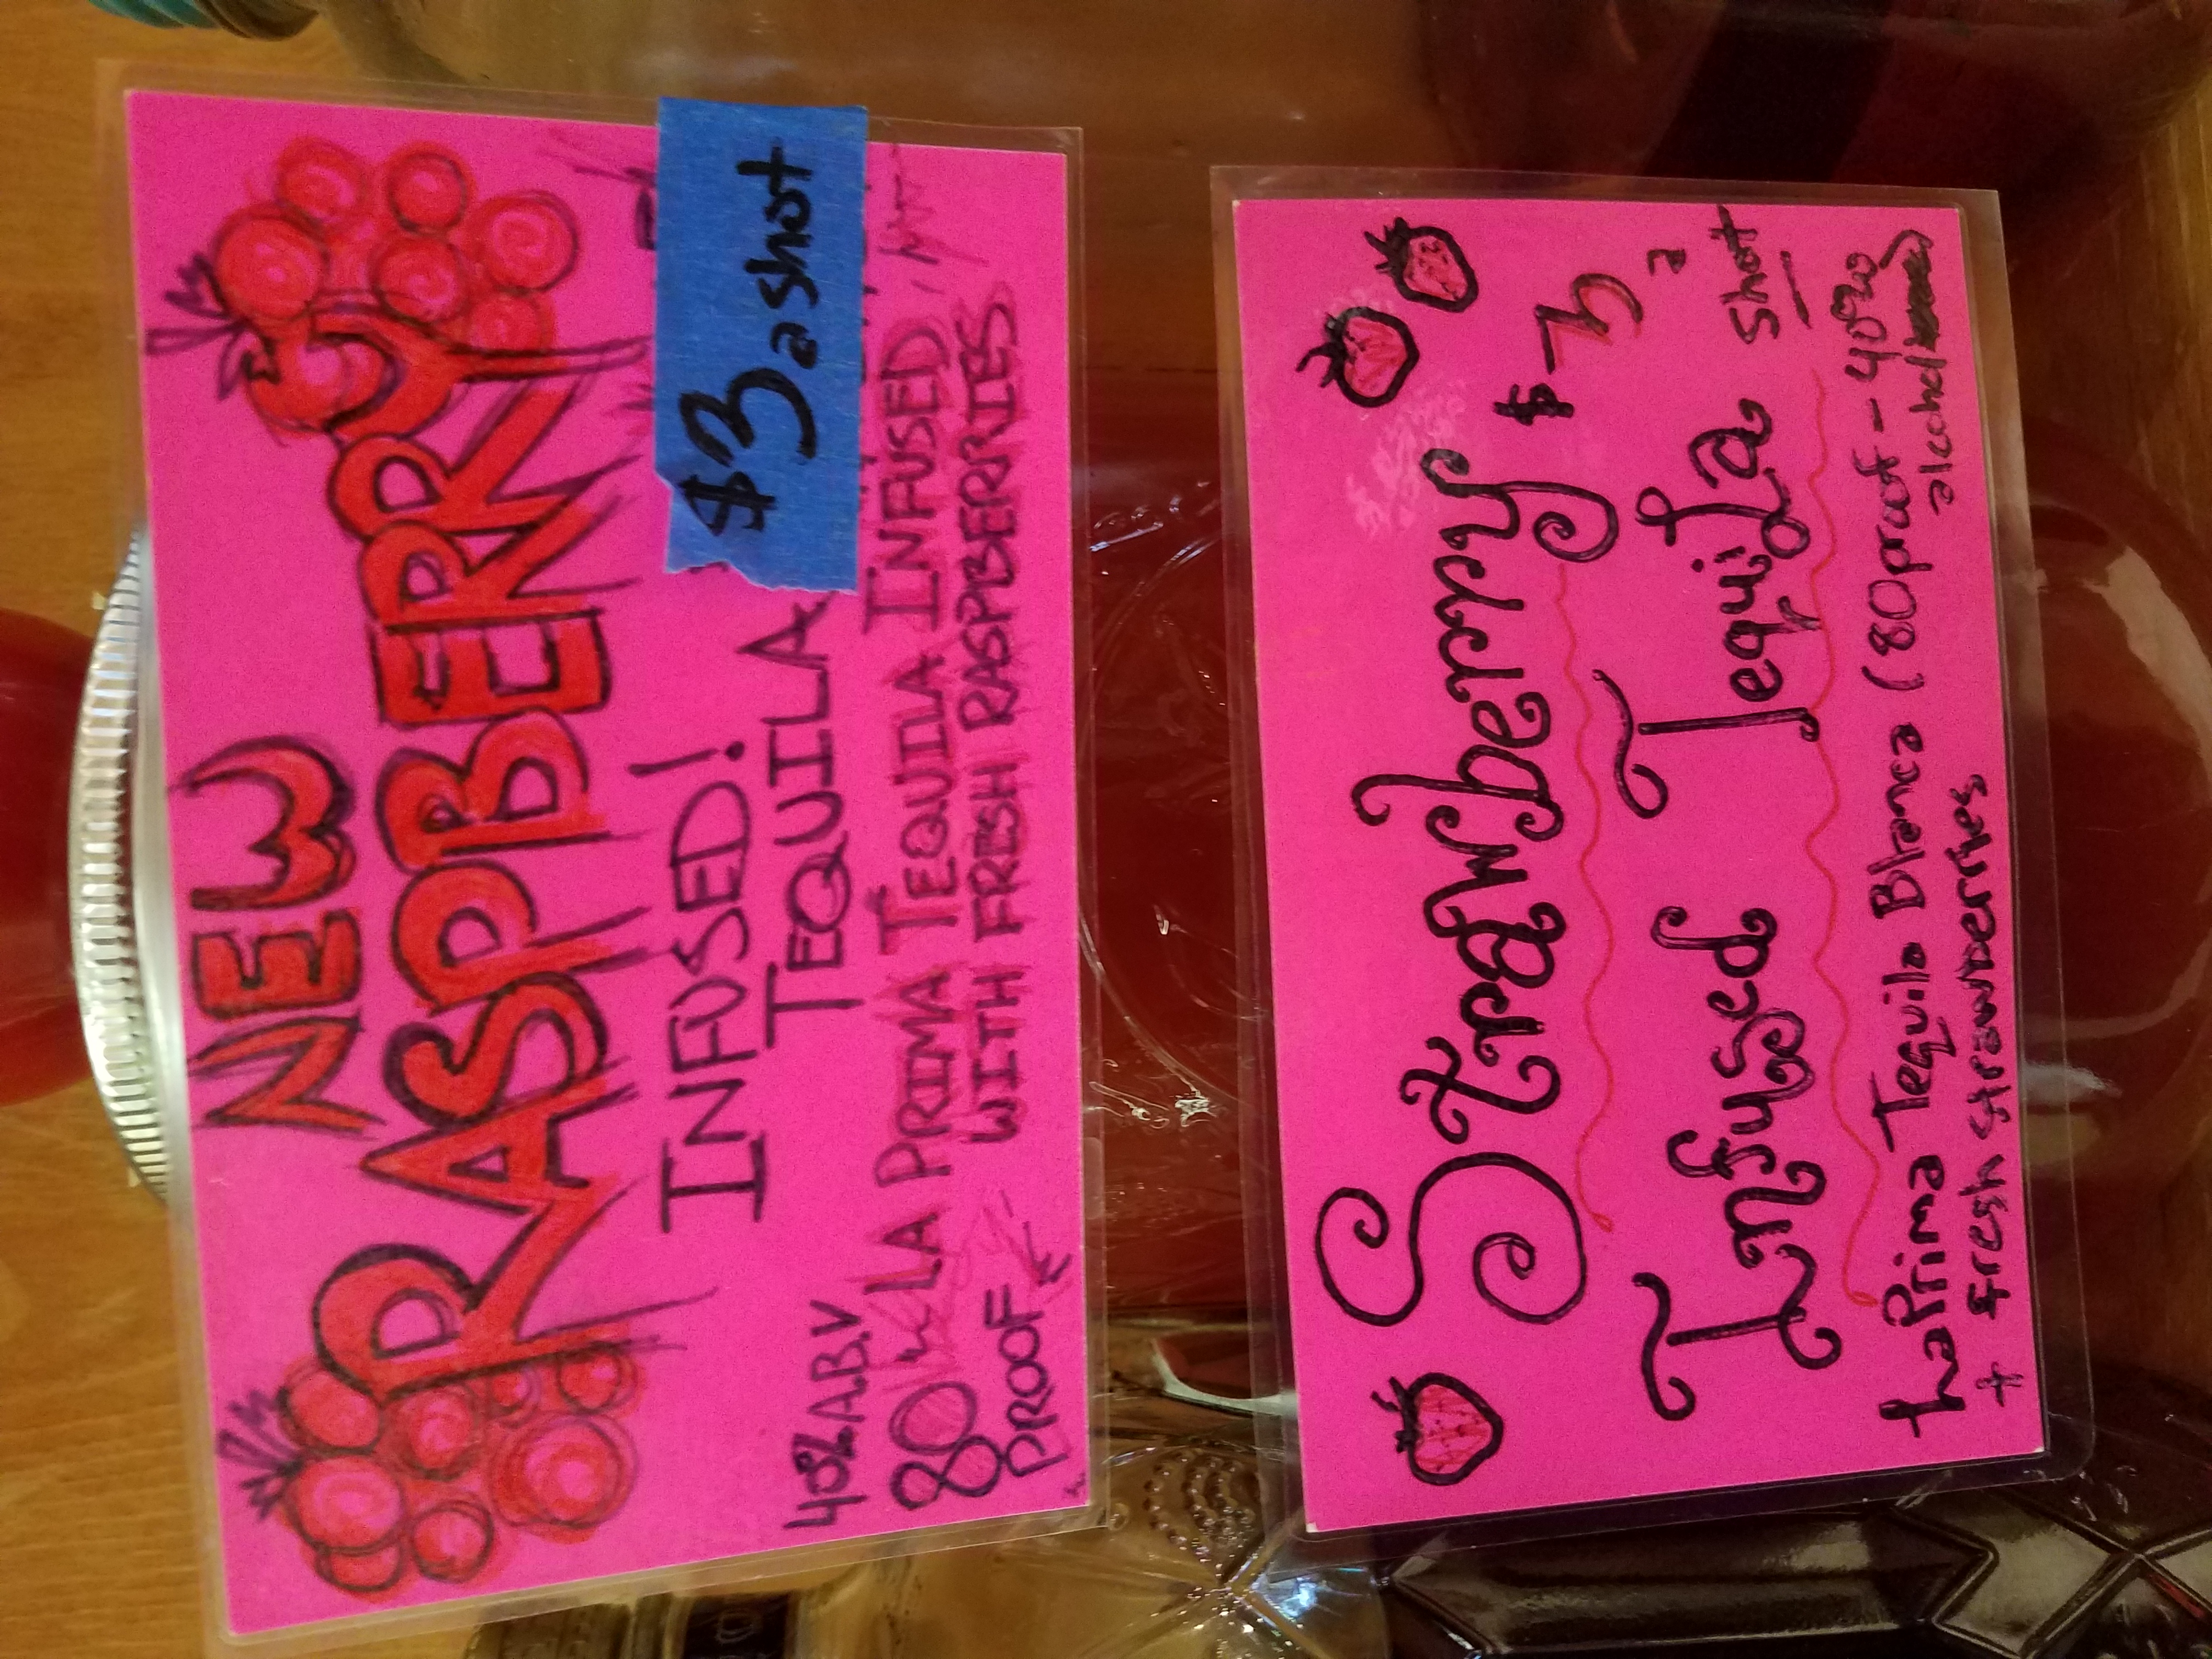 NEW
RASPBERRY
INFUSED!
TEQUILA
$3 a shot
40% A.B.V
80
PROOF
LA PRIMA TEQUILA INFUSED
WITH FRESH RASPBERRIES
Strawberry
$3
a
shot
Infused Tequila
LaPrima Tequila Blanca (80proof - 40%
alcohol)
+ fresh strawberries